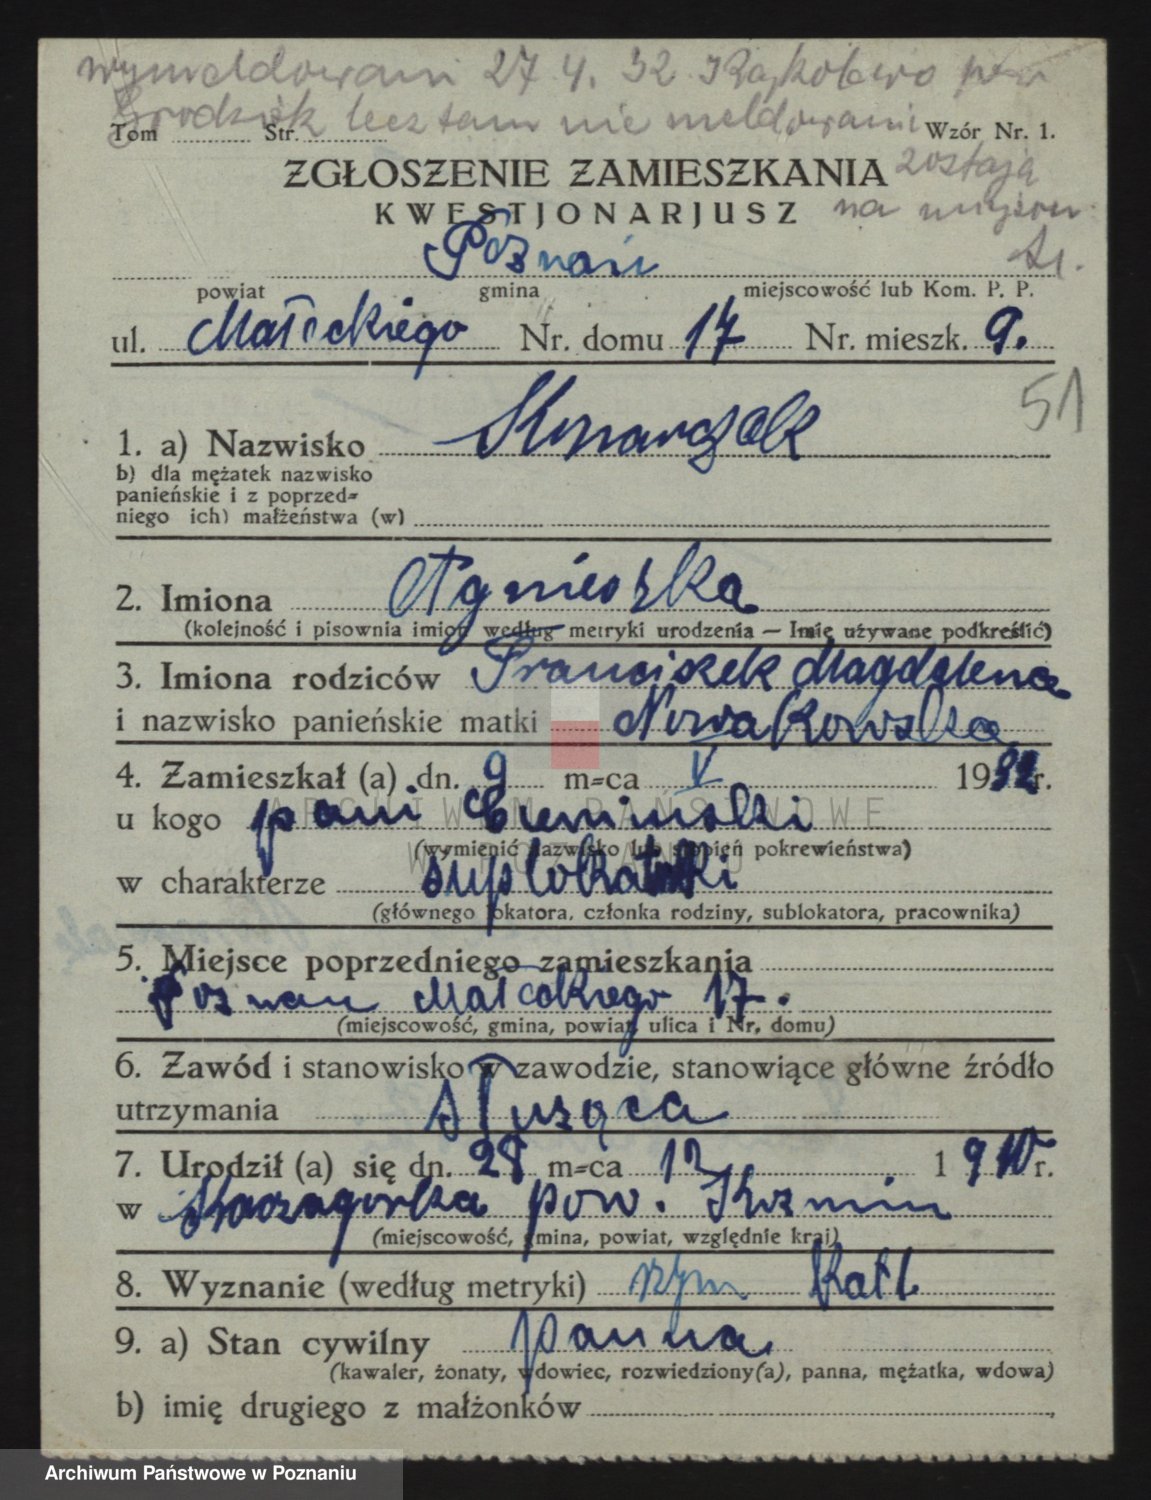 wymeldowani 27.4.32 Rąkolewo pow
Grodzisk lecz tam nie meldowani
Tom Str. Wzór Nr. 1.
ZGŁOSZENIE ZAMIESZKANIA
zostają
KWESTJONARJUSZ
na miejscu
Poznań
powiat gmina miejscowość lub Kom. P. P.
ul. Małeckiego Nr. domu 17 Nr. mieszk. 9.
51
1. a) Nazwisko Konarczak
b) dla mężatek nazwisko
panieńskie i z poprzed=
niego ich) małżeństwa (w)
2. Imiona Agnieszka
(kolejność i pisownia imion według metryki urodzenia — Imię używane podkreślić)
3. Imiona rodziców Franciszek Magdalena
i nazwisko panieńskie matki Nowakowska
4. Zamieszkał (a) dn. 9 m=ca V 1932 r.
ARCHIWUM PAŃSTWOWE
u kogo pani
(wymienić nazwisko lub stopień pokrewieństwa)
W POZNANIU
w charakterze
(głównego lokatora, członka rodziny, sublokatora, pracownika)
5. Miejsce poprzedniego zamieszkania
Poznan Małeckiego 17.
(miejscowość, gmina, powiat, ulica i Nr. domu)
6. Zawód i stanowisko w zawodzie, stanowiące główne źródło
utrzymania służąca
7. Urodził (a) się dn. 28 m=ca 12 1910 r.
w pow. Kozmin
(miejscowość, gmina, powiat, względnie kraj)
8. Wyznanie (według metryki) rzym Katl
9. a) Stan cywilny panna
(kawaler, żonaty, wdowiec, rozwiedziony(a), panna, mężatka, wdowa)
b) imię drugiego z małżonków
Archiwum Państwowe w Poznaniu